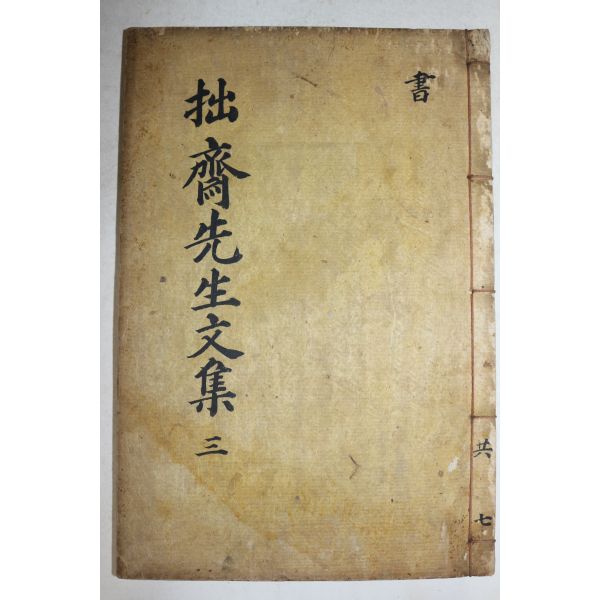 書
拙齋先生文集 三
共七